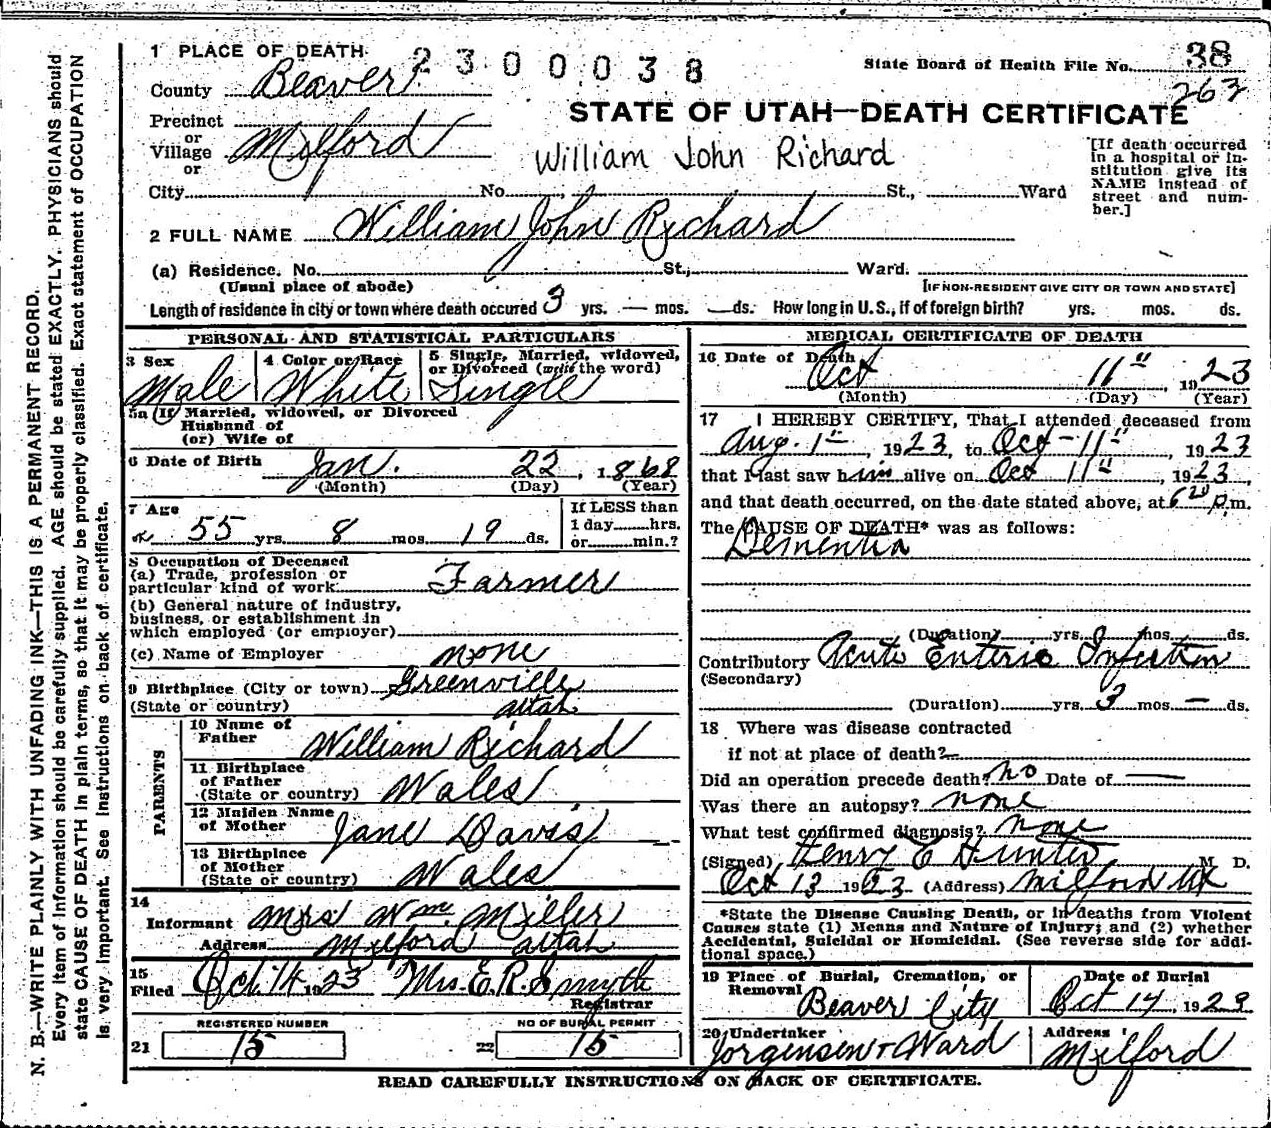 1 PLACE OF DEATH 2300038 State Board of Health File No. 38
County Beaver 263
STATE OF UTAH—DEATH CERTIFICATE
Precinct
or
Village Milford
or
William John Richard
[If death occurred in a hospital or institution give its NAME instead of street and number.]
City No. St., Ward
2 FULL NAME William John Richard
(a) Residence. No. St., Ward.
(Usual place of abode) [IF NON-RESIDENT GIVE CITY OR TOWN AND STATE]
Length of residence in city or town where death occurred 3 yrs. — mos. — ds. How long in U.S., if of foreign birth? yrs. mos. ds.
PERSONAL AND STATISTICAL PARTICULARS
3 Sex Male
4 Color or Race White
5 Single, Married, widowed, or Divorced (write the word) Single
5a If Married, widowed, or Divorced
Husband of
(or) Wife of
6 Date of Birth Jan. 22, 1868
(Month) (Day) (Year)
7 Age 55 yrs. 8 mos. 19 ds.
If LESS than
1 day hrs.
or min.?
8 Occupation of Deceased
(a) Trade, profession or
particular kind of work Farmer
(b) General nature of industry,
business, or establishment in
which employed (or employer)
(c) Name of Employer none
9 Birthplace (City or town) Greenville
(State or country) Utah
PARENTS
10 Name of
Father William Richard
11 Birthplace
of Father
(State or country) Wales
12 Maiden Name
of Mother Jane Davis
13 Birthplace
of Mother
(State or country) Wales
14
Informant Mrs Wm. Miller
Address Milford Utah
15
Filed Oct. 14 1923 Mrs. E. R. Smythe
Registrar
REGISTERED NUMBER NO OF BURIAL PERMIT
21 15 22 15
MEDICAL CERTIFICATE OF DEATH
16 Date of Death
Oct 11", 1923
(Month) (Day) (Year)
17 I HEREBY CERTIFY, That I attended deceased from
Aug. 1st, 1923, to Oct - 11", 1923
that I last saw him alive on Oct 11", 1923,
and that death occurred, on the date stated above, at 6 20 p.m.
The CAUSE OF DEATH* was as follows:
Dementia
(Duration) yrs. mos. ds.
Contributory Acute Enteric Infection
(Secondary)
(Duration) yrs. 3 mos. — ds.
18 Where was disease contracted
if not at place of death? —
Did an operation precede death? no Date of —
Was there an autopsy? none
What test confirmed diagnosis? none
(Signed) Henry E Hunter M. D.
Oct 13 1923 (Address) Milford Ut
*State the Disease Causing Death, or in deaths from Violent
Causes state (1) Means and Nature of Injury; and (2) whether
Accidental, Suicidal or Homicidal. (See reverse side for addi-
tional space.)
19 Place of Burial, Cremation, or
Removal
Beaver City
Date of Burial
Oct 14, 1929
20 Undertaker
Jorgensen & Ward
Address
Milford
READ CAREFULLY INSTRUCTIONS ON BACK OF CERTIFICATE.
N. B.—WRITE PLAINLY WITH UNFADING INK—THIS IS A PERMANENT RECORD.
Every item of information should be carefully supplied. AGE should be stated EXACTLY. PHYSICIANS should
state CAUSE OF DEATH in plain terms, so that it may be properly classified. Exact statement of OCCUPATION
is very important. See instructions on back of certificate.